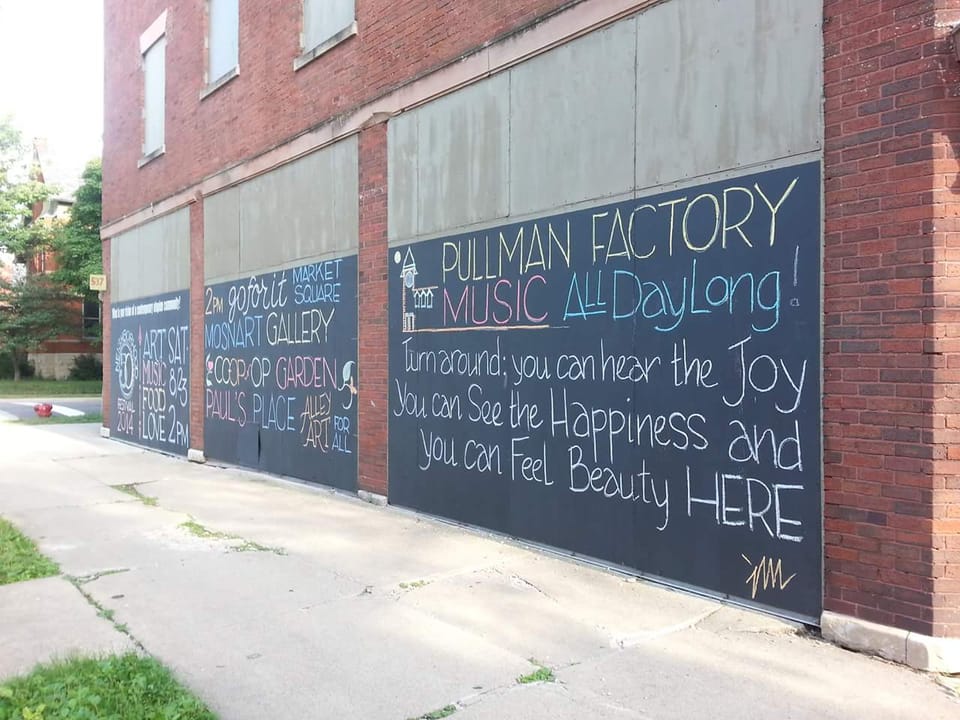 517
ART SAT
MUSIC 8/23
FOOD
LOVE 2PM
FESTIVAL
2014
2PM goforit MARKET
SQUARE
MOSNART GALLERY
COOP OP GARDEN
PAUL'S PLACE ALLEY
ART FOR
ALL
PULLMAN FACTORY
MUSIC All DayLong!
Turn around; you can hear the Joy
You can See the Happiness and
you can Feel Beauty HERE